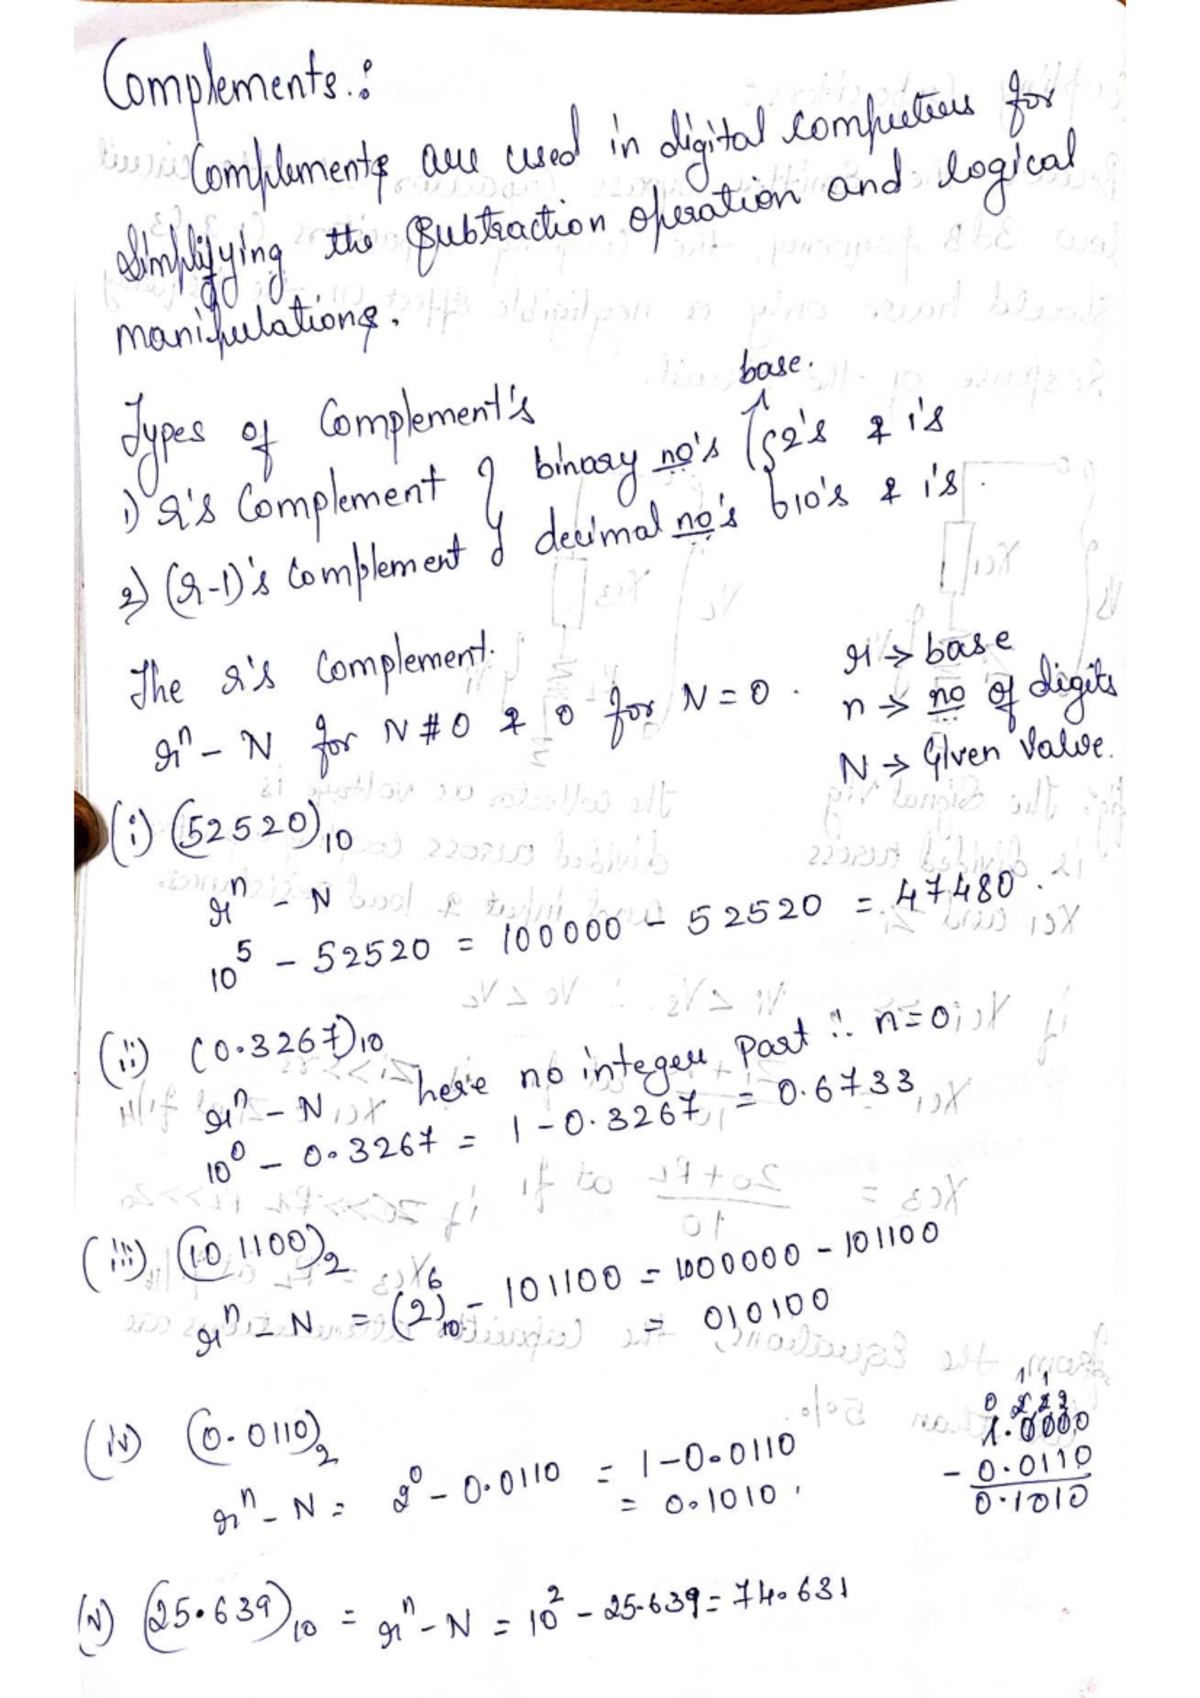 Complements.:
Complements are used in digital computers for
simplifying the subtraction operation and logical
manipulations.
base.
Types of Complement's
1) r's Complement } binary no's { 2's & 1's
2) (r-1)'s Complement } decimal no's { 10's & 1's.
The r's Complement.
r → base
rⁿ - N for N # 0 & 0 for N = 0.
n → no of digits
N → Given Value.
(i) (52520)₁₀
rⁿ - N
10⁵ - 52520 = 100000 - 52520 = 47480.
(ii) (0.3267)₁₀
rⁿ - N here no integer Part ∴ n=0
10⁰ - 0.3267 = 1 - 0.3267 = 0.6733
(iii) (101100)₂
rⁿ - N = (2)⁶₁₀ - 101100 = 1000000 - 101100
= 010100
(iv) (0.0110)₂
rⁿ - N = 2⁰ - 0.0110 = 1-0.0110
= 0.1010.
1 1
0 2 2 2
1.0000
- 0.0110
0.1010
(v) (25.639)₁₀ = rⁿ - N = 10² - 25.639 = 74.631